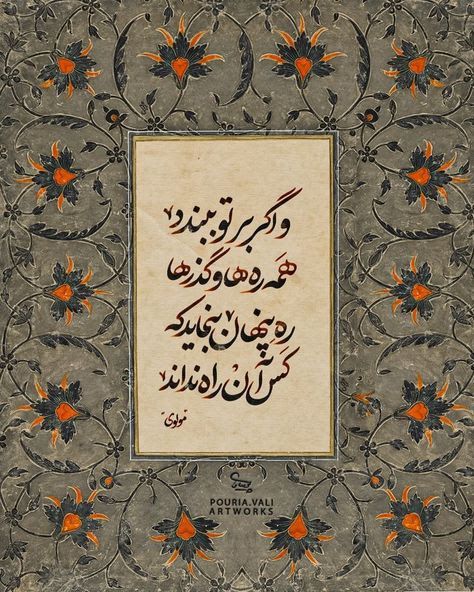 و اگر بر تو ببندد
همَه ره ها و گذرها
رهِ پنهان بنماید که
کَس آن راه نداند
"مولوی"
POURIA.VALI
ARTWORKS